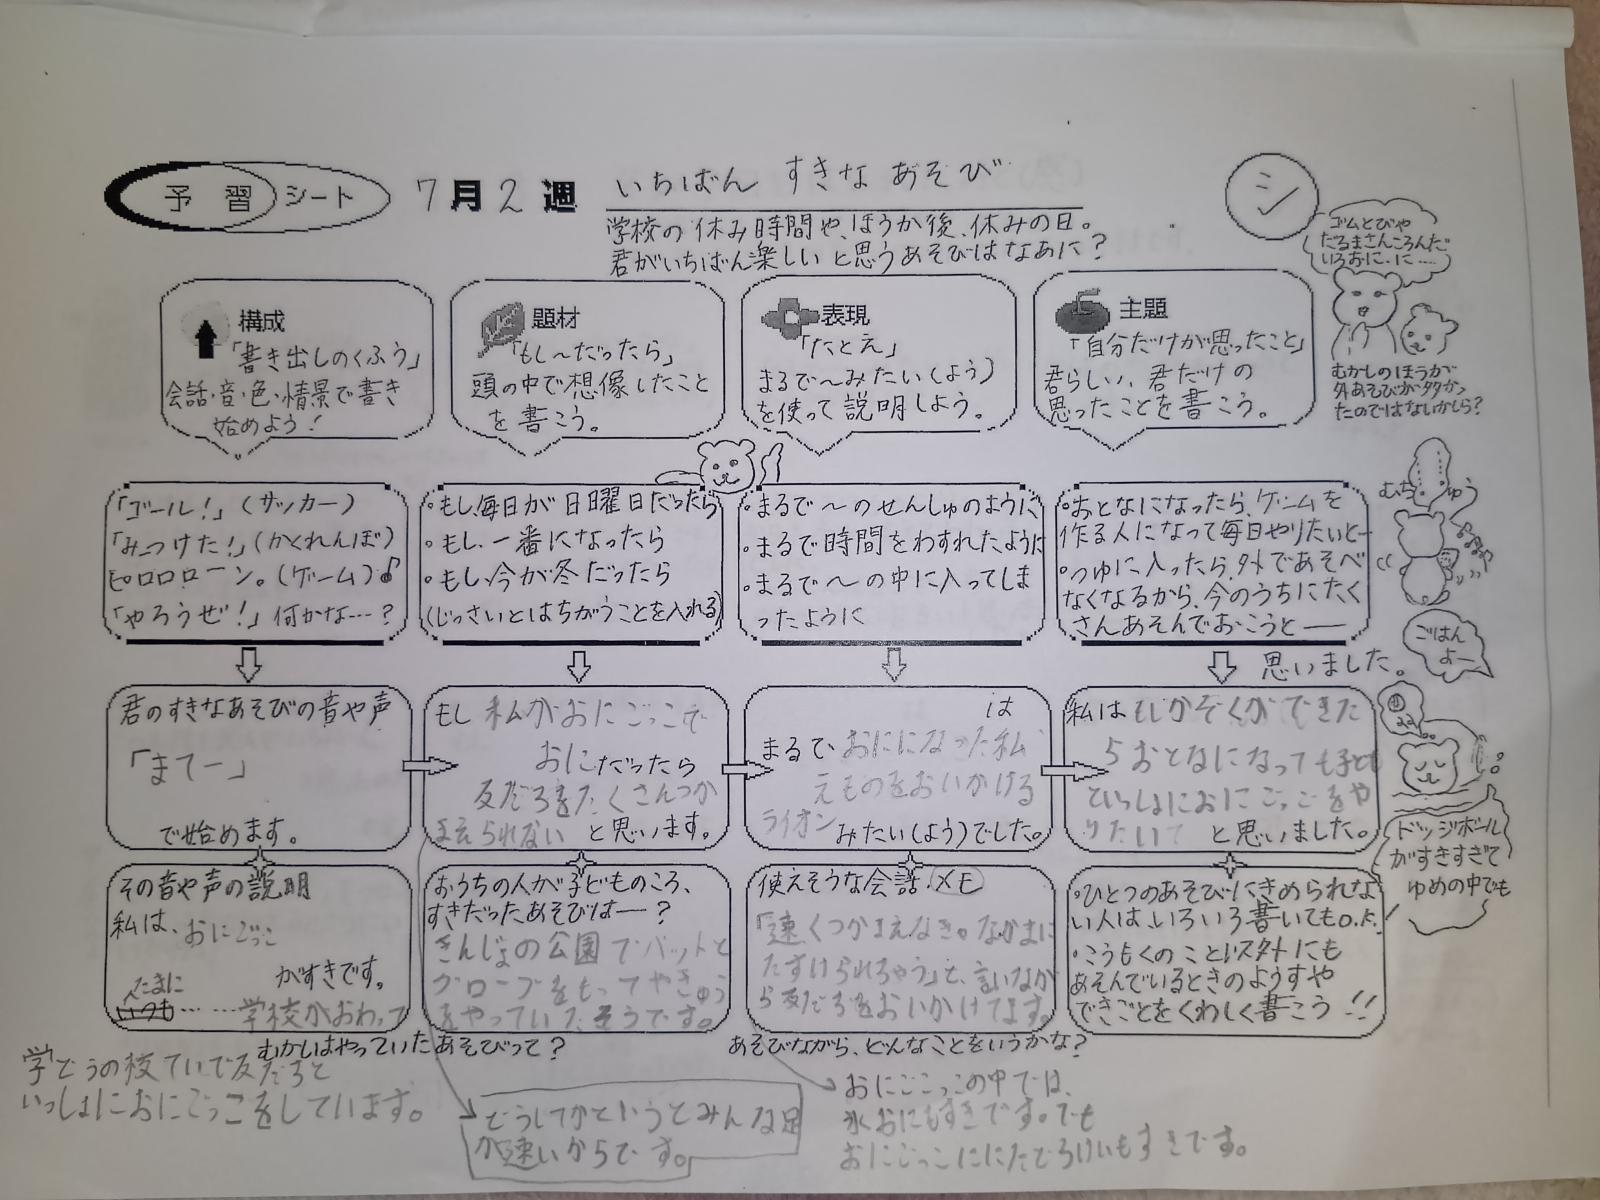 予習シート 7月2週 いちばん すきな あそび
学校の休み時間や、ほうか後、休みの日。
君がいちばん楽しいと思うあそびはなあに?
シ
ゴムとびや
だるまさんころんだ
いろおに・に……
むかしのほうが
外あそびが多かっ
たのではないかしら?
構成
「書き出しのくふう」
会話・音・色・情景で書き
始めよう!
題材
「もし〜だったら」
頭の中で想像したこと
を書こう。
表現
「たとえ」
まるで〜みたい(よう)
を使って説明しよう。
主題
「自分だけが思ったこと」
君らしい、君だけの
思ったことを書こう。
「ゴール!」(サッカー)
「みつけた!」(かくれんぼ)
ピロロローン。(ゲーム)♪
「やろうぜ!」何かな…?
・もし、毎日が日曜日だったら
・もし、一番になったら
・もし、今が冬だったら
(じっさいとはちがうことを入れる)
・まるで〜のせんしゅのように
・まるで時間をわすれたように
・まるで〜の中に入ってしま
ったように
・おとなになったら、ゲームを
作る人になって毎日やりたいと—
・つゆに入ったら、外であそべ
なくなるから、今のうちにたく
さんあそんでおこうと——
思いました。
むちゅう
ごはん
よー
君のすきなあそびの音や声
「まてー」
で始めます。
もし 私がおにごっこで
おにだったら
友だちをたくさんつか
まえられない と思います。
は
まるで、おにになった私
えものをおいかける
ライオン みたい(よう)でした。
私はもしかぞくができた
らおとなになっても子ども
といっしょにおにごっこをや
りたいて と思いました。
ドッジボール
がすきすぎて
ゆめの中でも
その音や声の説明
私は、おにごっこ
がすきです。
たまに
いつも……学校がおわって
学どうの校ていで友だちと
いっしょにおにごっこをしています。
おうちの人が子どものころ、
すきだったあそびは—?
きんじょの公園でバットと
グローブをもってやきゅう
をやっていたそうです。
むかしはやっていたあそびって?
どうしてかというとみんな足
が速いからです。
使えそうな会話・メモ
「速くつかまえなき。なかまに
たすけられちゃう」と、言いなが
ら友だちをおいかけてます。
あそびながら、どんなことをいうかな?
おにごこっこの中では、
氷おにもすきです。でも
おにごっこににたどろけいもすきです。
・ひとつのあそびにきめられな
い人は、いろいろ書いてもO.K.
・こうもくのことがスタートにも
あそんでいるときのようすや
できごとをくわしく書こう!!